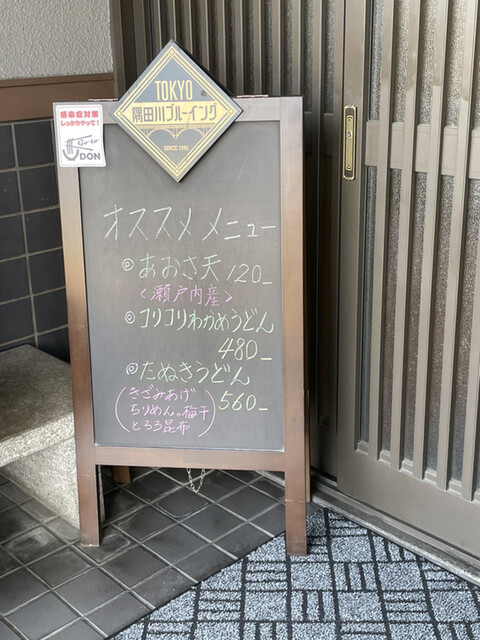 TOKYO
隅田川ブルーイング
SINCE 1995
感染症対策
しっかりやって!
Go to
UDON
オススメメニュー
◎あおさ天 120-
<瀬戸内産>
◎コリコリわかめうどん
480-
◎たぬきうどん
560-
(きざみあげ
ちりめん。梅干
とろろ昆布)